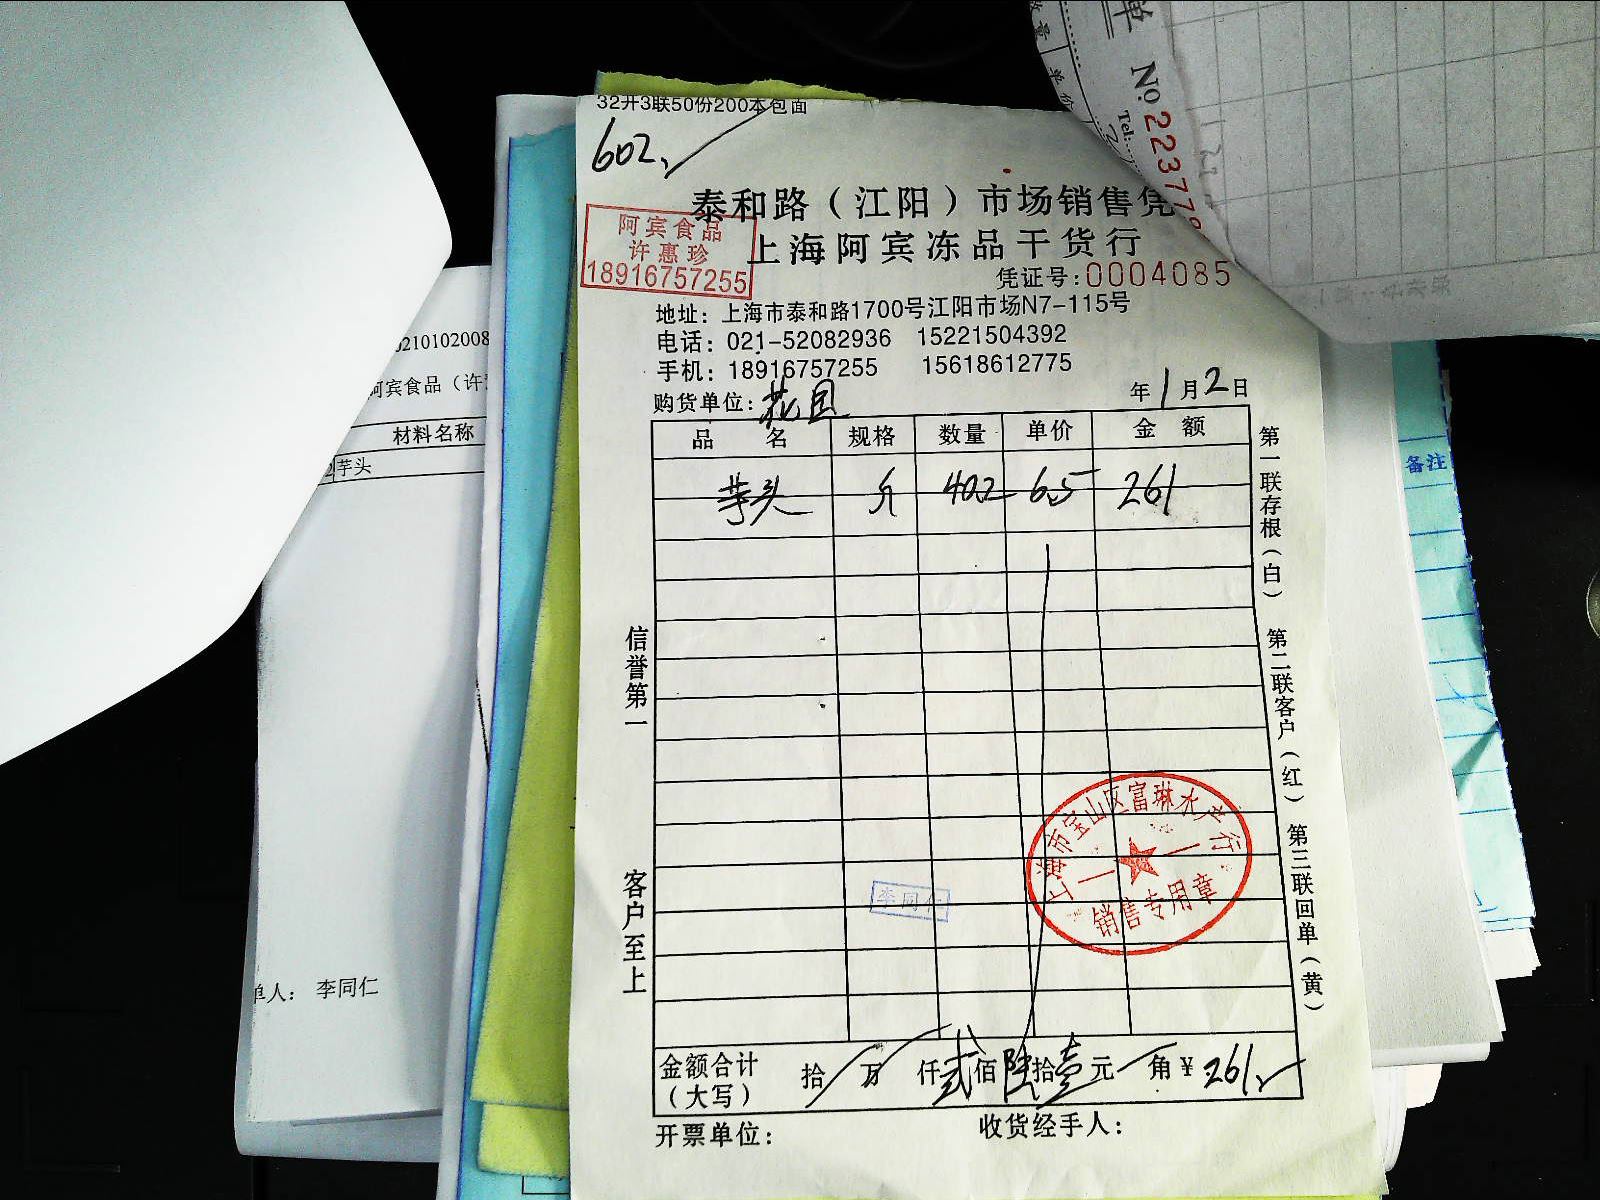 32开3联50份200本包面
602.
泰和路（江阳）市场销售凭
上海阿宾冻品干货行
阿宾食品
许惠珍
18916757255
凭证号:0004085
地址：上海市泰和路1700号江阳市场N7-115号
电话：021-52082936 15221504392
手机：18916757255 15618612775
购货单位：花园
年1月2日
品名 规格 数量 单价 金额
芋头 斤 40.2 6.5 261
第一联存根（白） 第二联客户（红） 第三联回单（黄）
信誉第一
客户至上
上海市宝山区富琳水产行
销售专用章
李同仁
金额合计（大写） 拾 万 仟贰佰陆拾壹元 角￥261.
开票单位：
收货经手人：
单
数量
单价
№223779
Tel:
210102008
阿宾食品（许
材料名称
芋头
单人： 李同仁
备注